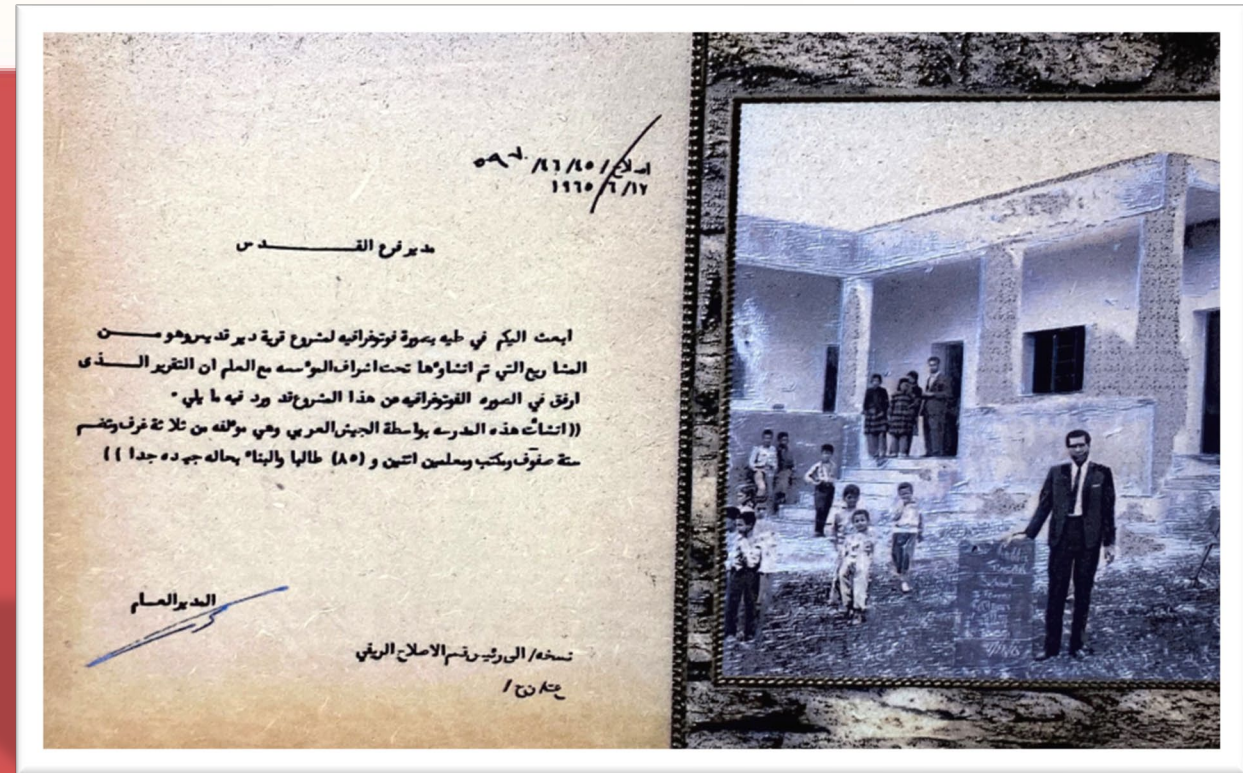 اصلاح / ٤٥/ ٤٦/
١٧/ ٦/ ١٩٦٥
مدير فرع القـــــــدس
ابعث اليكم في طيه بصورة فوتوغرافيه لمشروع قرية دير قديس وهو مــــن
المشاريع التي تم انشاوءها تحت اشراف الموءسسه مع العلم ان التقرير الــــذى
ارفق في الصوره الفوتوغرافيه عن هذا المشروع قد ورد فيه ما يلي ٠
(( انشات هذه المدرسه بواسطة الجيش العربي وهي موءلفه من ثلاثة غرف وتضــم
ستة صفوف ومكتب ومعلمين اثنين و (٨٥) طالبا والبناء بحاله جيده جدا ))
المدير العــام
نسخه/ الى رئيس قسم الاصلاح الريفي